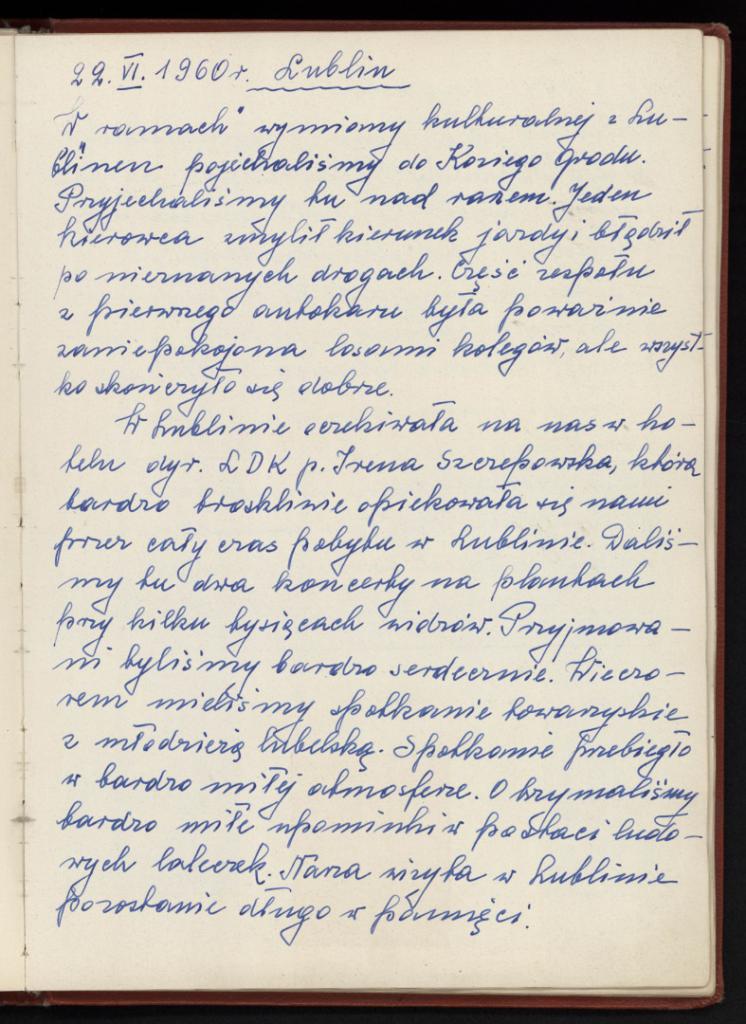 22. VI. 1960 r. Lublin
W ramach "wymiany kulturalnej z Lu-
blinem" pojechaliśmy do Koziego Grodu.
Przyjechaliśmy tu nad ranem. Jeden
kierowca zmylił kierunek jazdy i błądził
po nieznanych drogach. Część zespołu
z pierwszego autokaru była poważnie
zaniepokojona losami kolegów, ale wszyst-
ko skończyło się dobrze.
W Lublinie oczekiwała na nas w ho-
telu dyr. LDK p. Irena Szczepowska, która
bardzo troskliwie opiekowała się nami
przez cały czas pobytu w Lublinie. Daliś-
my tu dwa koncerty na plantach
przy kilku tysiącach widzów. Przyjmowa-
ni byliśmy bardzo serdecznie. Wieczo-
rem mieliśmy spotkanie towarzyskie
z młodzieżą lubelską. Spotkanie przebiegło
w bardzo miłej atmosferze. Otrzymaliśmy
bardzo miłe upominki w postaci ludo-
wych laleczek. Nasza wizyta w Lublinie
pozostanie długo w pamięci.